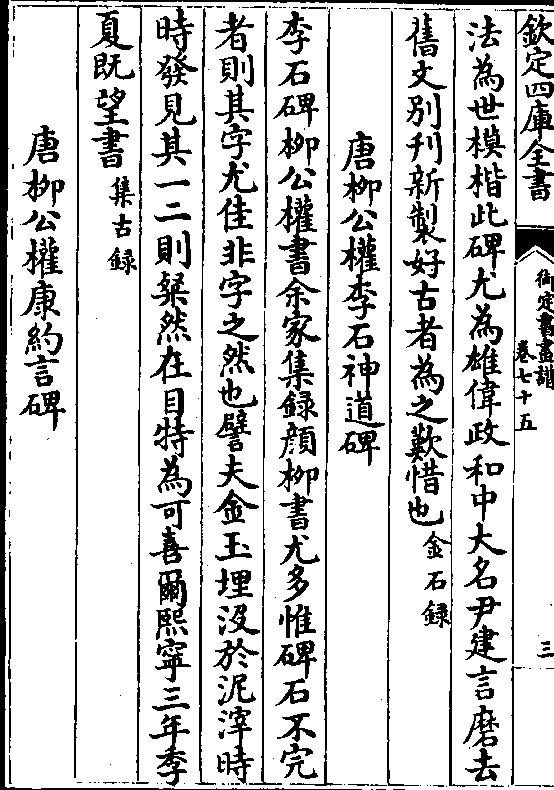 欽定四庫全書
御定書畫譜
卷七十五
三
法為世模楷此碑尤為雄偉政和中大名尹建言磨去
舊文別刋新製好古者為之歎惜也金石録
唐柳公權李石神道碑
李石碑柳公權書余家集録顔柳書尤多惟碑石不完
者則其字尤佳非字之然也譬夫金玉埋沒於泥滓時
時發見其一二則粲然在目特為可喜爾熙寧三年季
夏既望書集古録
唐柳公權康約言碑